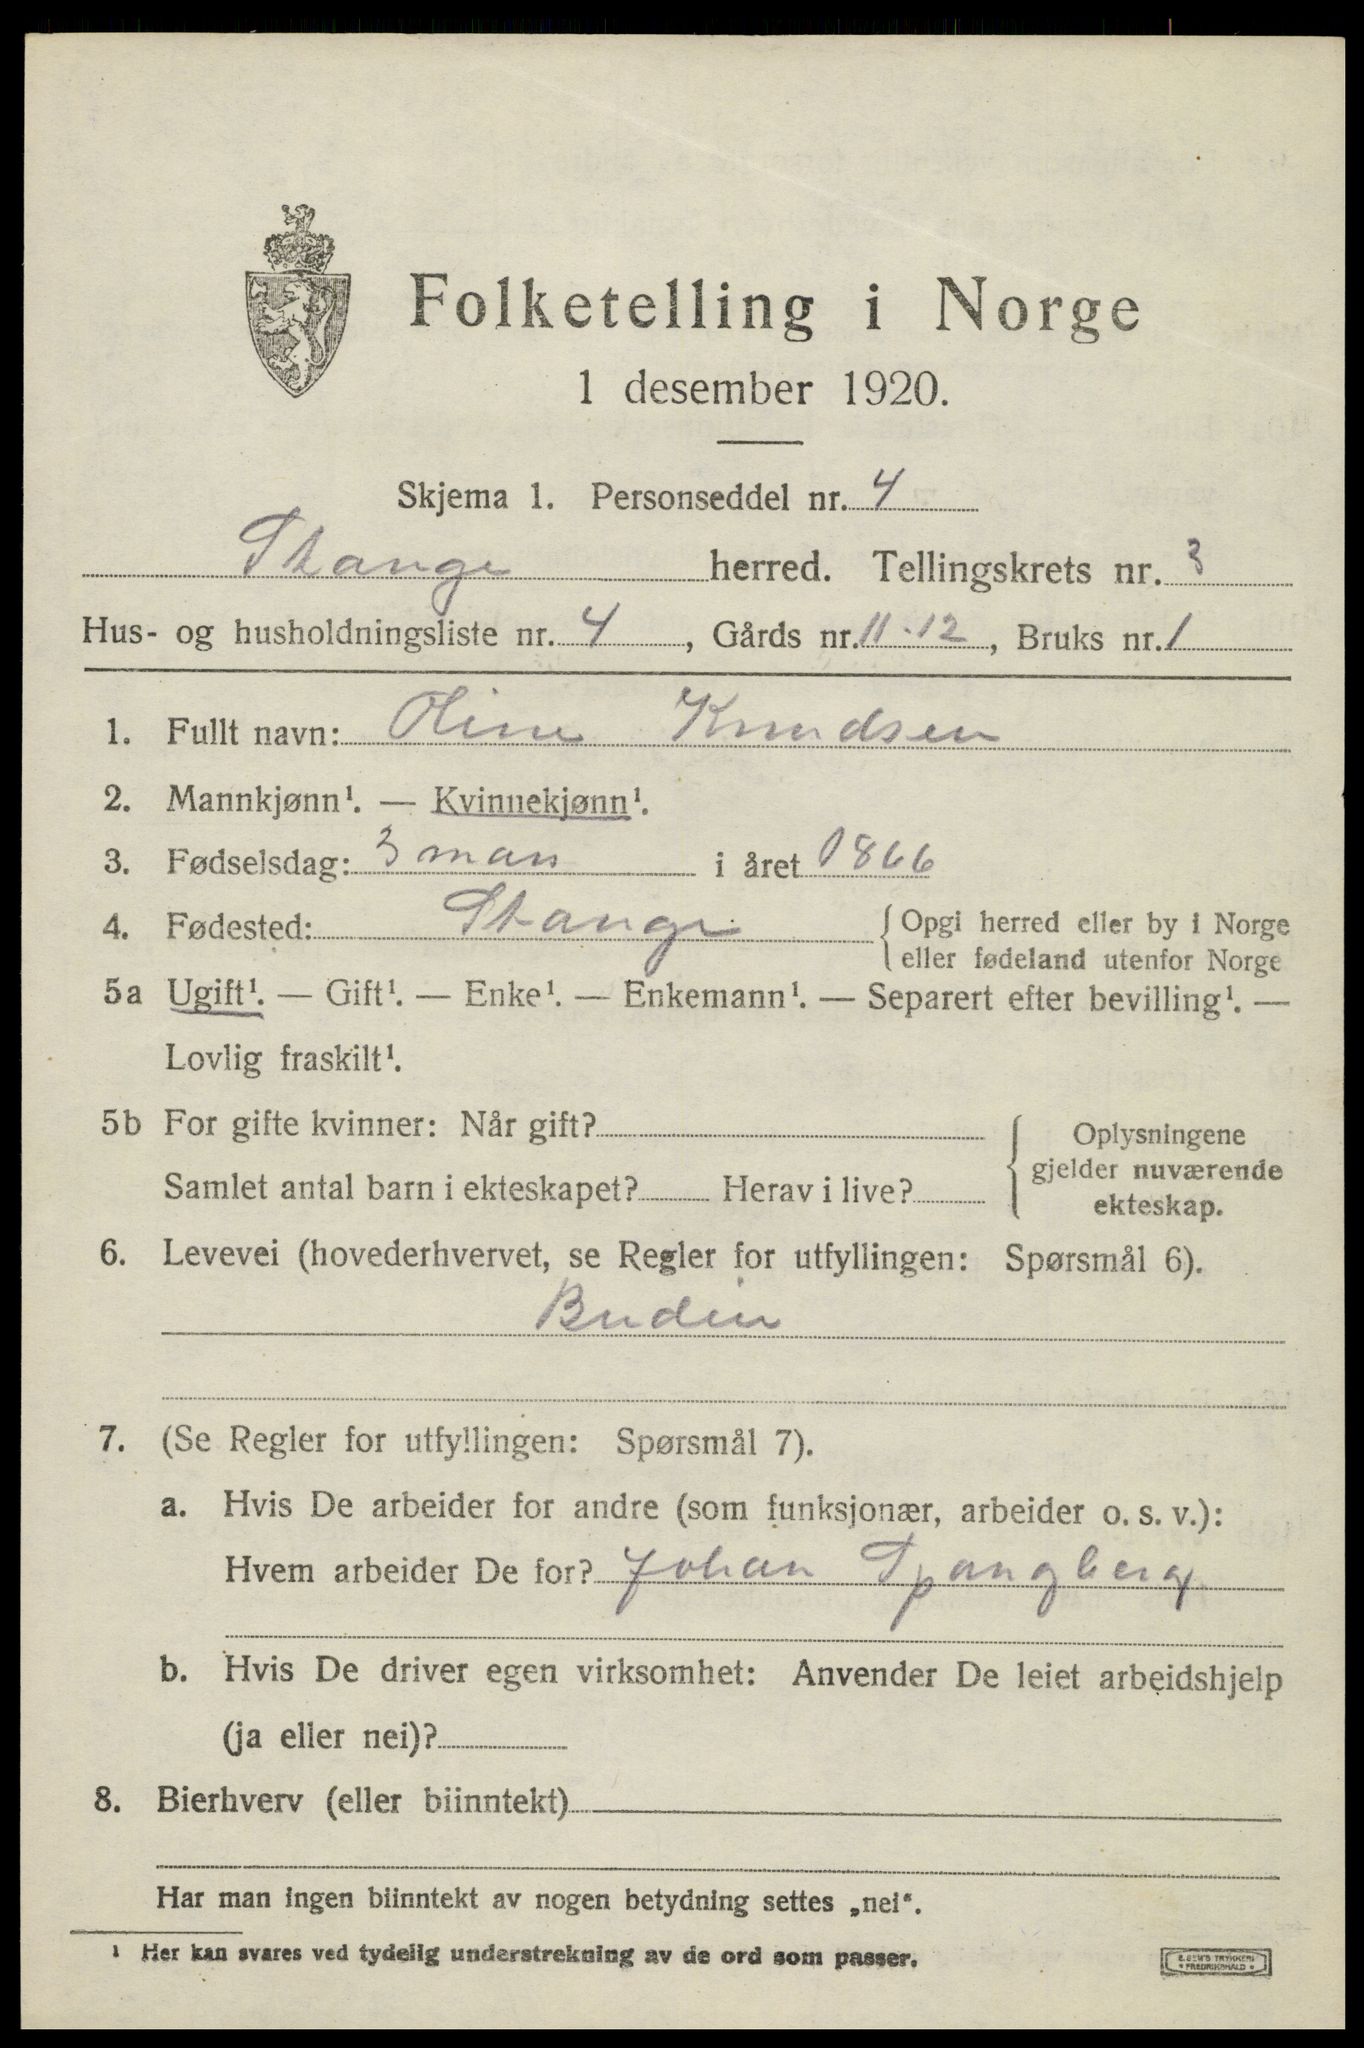 Folketelling i Norge
1 desember 1920.
Skjema 1. Personseddel nr. 4
Stange herred. Tellingskrets nr. 3
Hus- og husholdningsliste nr. 4, Gårds nr. 11-12, Bruks nr. 1
1. Fullt navn: Oline Knudsen
2. Mannkjønn¹. — Kvinnekjønn¹.
3. Fødselsdag: 3 mars i året 1866
4. Fødested: Stange { Opgi herred eller by i Norge
eller fødeland utenfor Norge
5a Ugift¹. — Gift¹. — Enke¹. — Enkemann¹. — Separert efter bevilling¹. —
Lovlig fraskilt¹.
5b For gifte kvinner: Når gift?
Samlet antal barn i ekteskapet? Herav i live?
{ Oplysningene
gjelder nuværende
ekteskap.
6. Levevei (hovederhvervet, se Regler for utfyllingen: Spørsmål 6).
Budeie
7. (Se Regler for utfyllingen: Spørsmål 7).
a. Hvis De arbeider for andre (som funksjonær, arbeider o. s. v.):
Hvem arbeider De for? Johan Spangberg
b. Hvis De driver egen virksomhet: Anvender De leiet arbeidshjelp
(ja eller nei)?
8. Bierhverv (eller biinntekt)
Har man ingen biinntekt av nogen betydning settes „nei“.
¹ Her kan svares ved tydelig understrekning av de ord som passer.
E. SEM'S TRYKKERI
* FREDRIKSHALD *